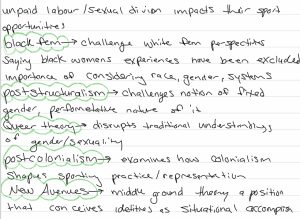 unpaid labour/sexual divion impacts their sport
opportunities
black fem → challenge white fem perspectives
Saying black womens experiences have been excluded
importance of considering race, gender, systems
poststructuralism → challenges notion of fixed
gender, performative nature of it
Queer theory → disrupts traditional understandings
of gender/sexuality
postcolonialism → examines how colonialism
shapes sporting practice/representation
New Avenues → middle ground theory a position
that conceives identities as situational accomplish